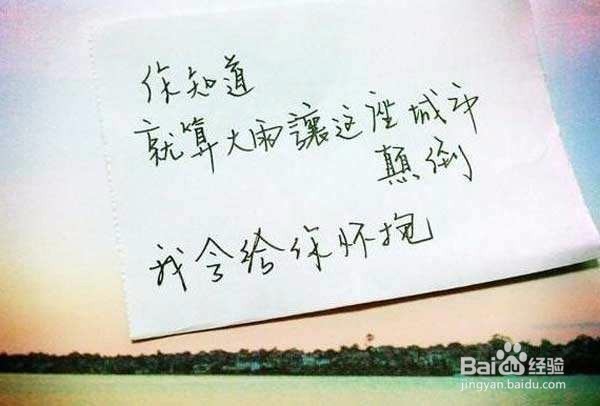 你知道
就算大雨讓这座城市
顛倒
我会给你怀抱
Baidu经验
jingyan.baidu.com